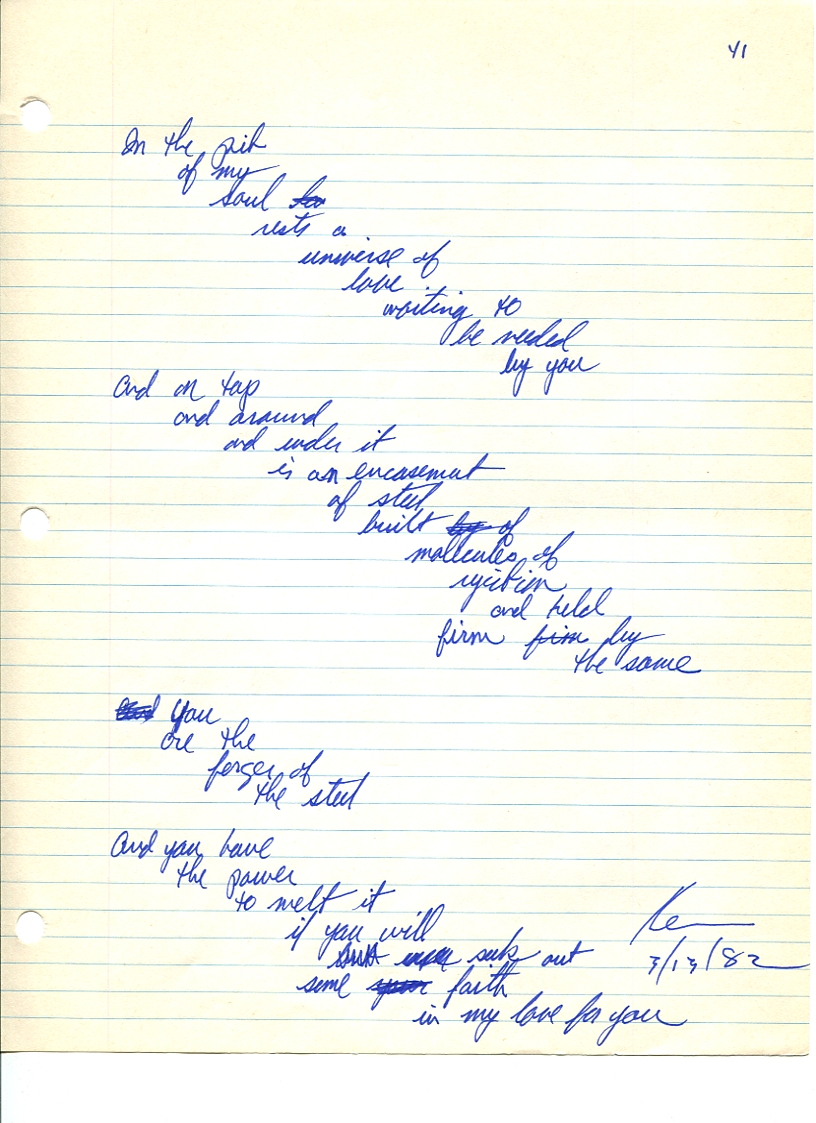 41
In the pit
of my
soul
rests a
universe of
love
waiting to
be needed
by you
And on top
and around
and under it
is an encasement
of steel
built by of
molecules of
rejection
and held
firm firm by
the same
And You
are the
forger of
the steel
And you have
the power
to melt it
if you will
seek out
some faith
in my love for you
Ken
3/13/82